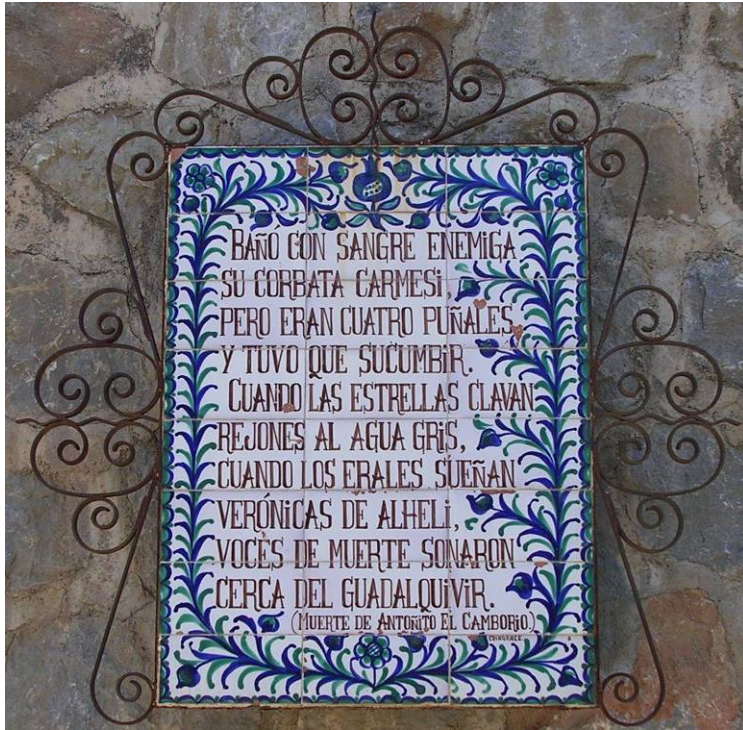 BAÑÓ CON SANGRE ENEMIGA
SU CORBATA CARMESI,
PERO ERAN CUATRO PUÑALES
Y TUVO QUE SUCUMBIR.
CUANDO LAS ESTRELLAS CLAVAN
REJONES AL AGUA GRIS,
CUANDO LOS ERALES SUEÑAN
VERÓNICAS DE ALHELI,
VOCES DE MUERTE SONARON
CERCA DEL GUADALQUIVIR.
(MUERTE DE ANTOÑITO EL CAMBORIO.)